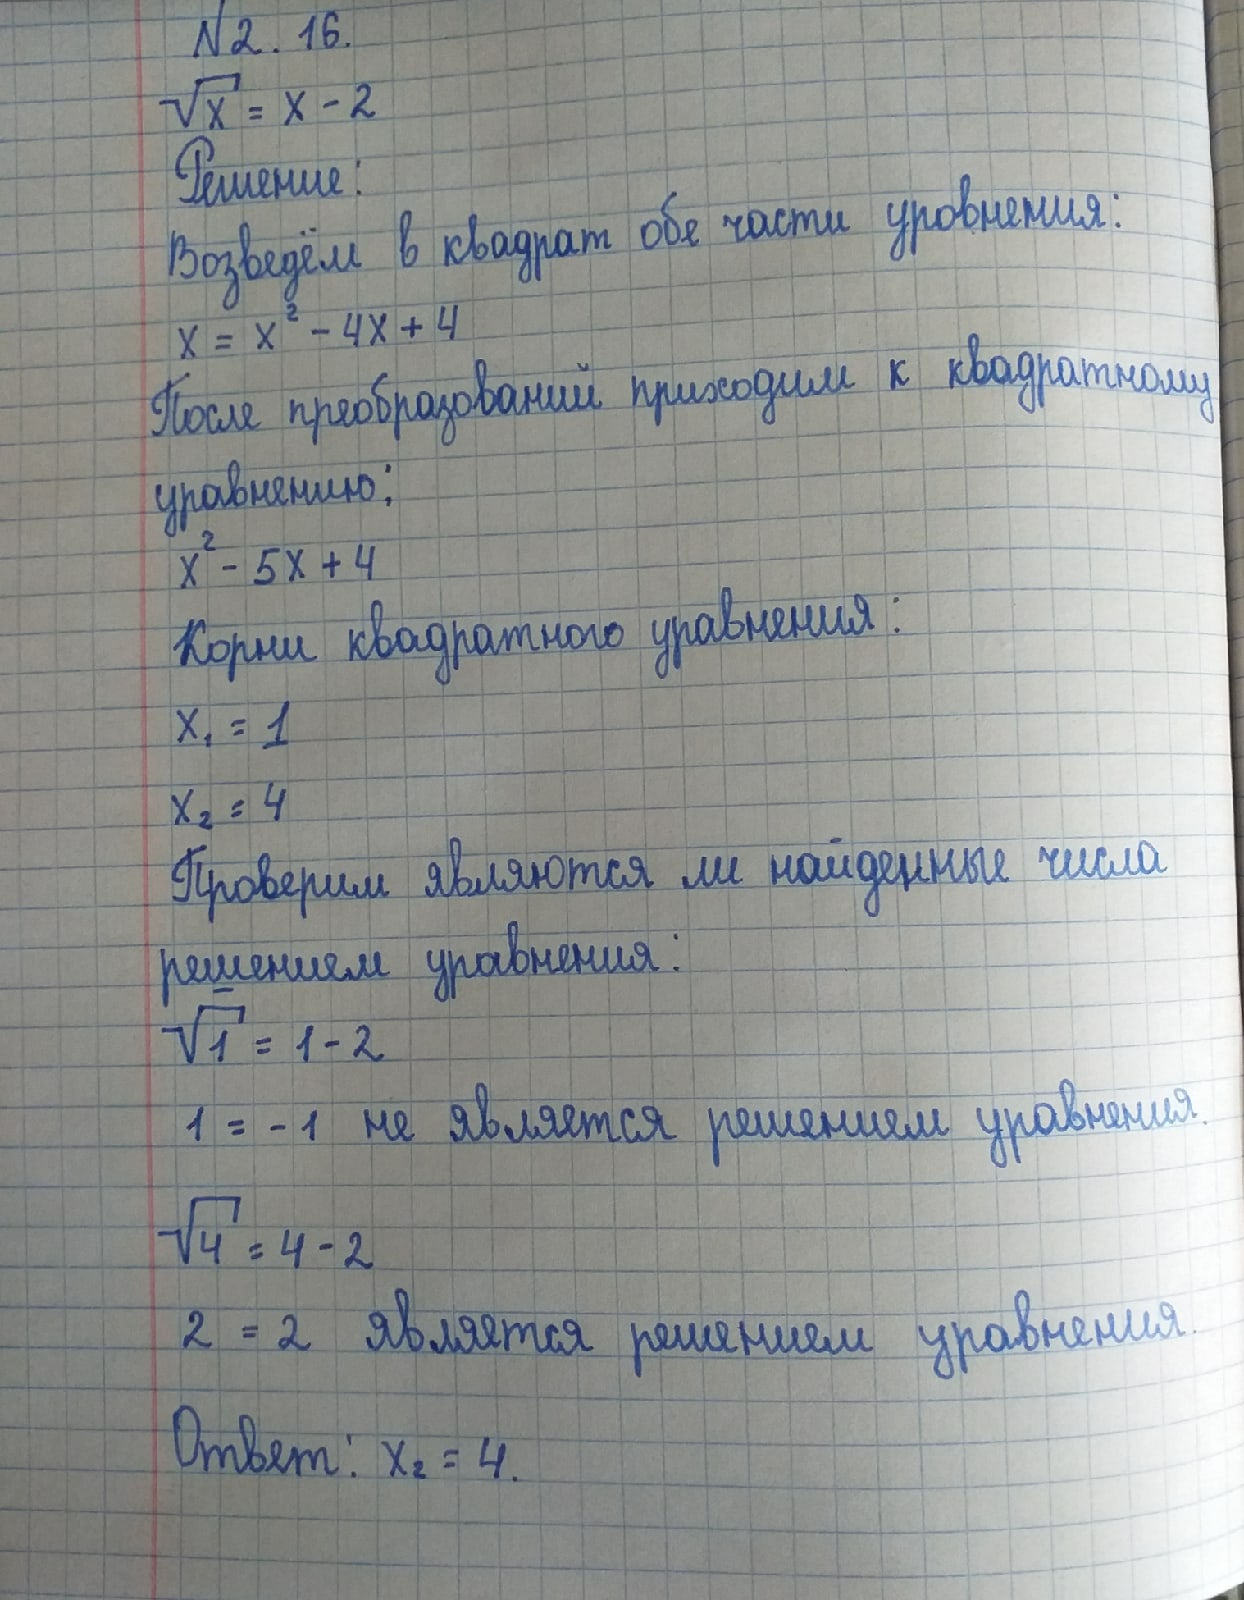 N2.16.
√x = x - 2
Решение:
Возведём в квадрат обе части уровнения:
x = x² - 4x + 4
После преобразований приходим к квадратному
уравнению:
x² - 5x + 4
Корни квадратного уравнения:
x₁ = 1
x₂ = 4
Проверим являются ли найденные числа
решением уравнения:
√1 = 1 - 2
1 = -1 не является решением уравнения.
√4 = 4 - 2
2 = 2 является решением уравнения.
Ответ: x₂ = 4.